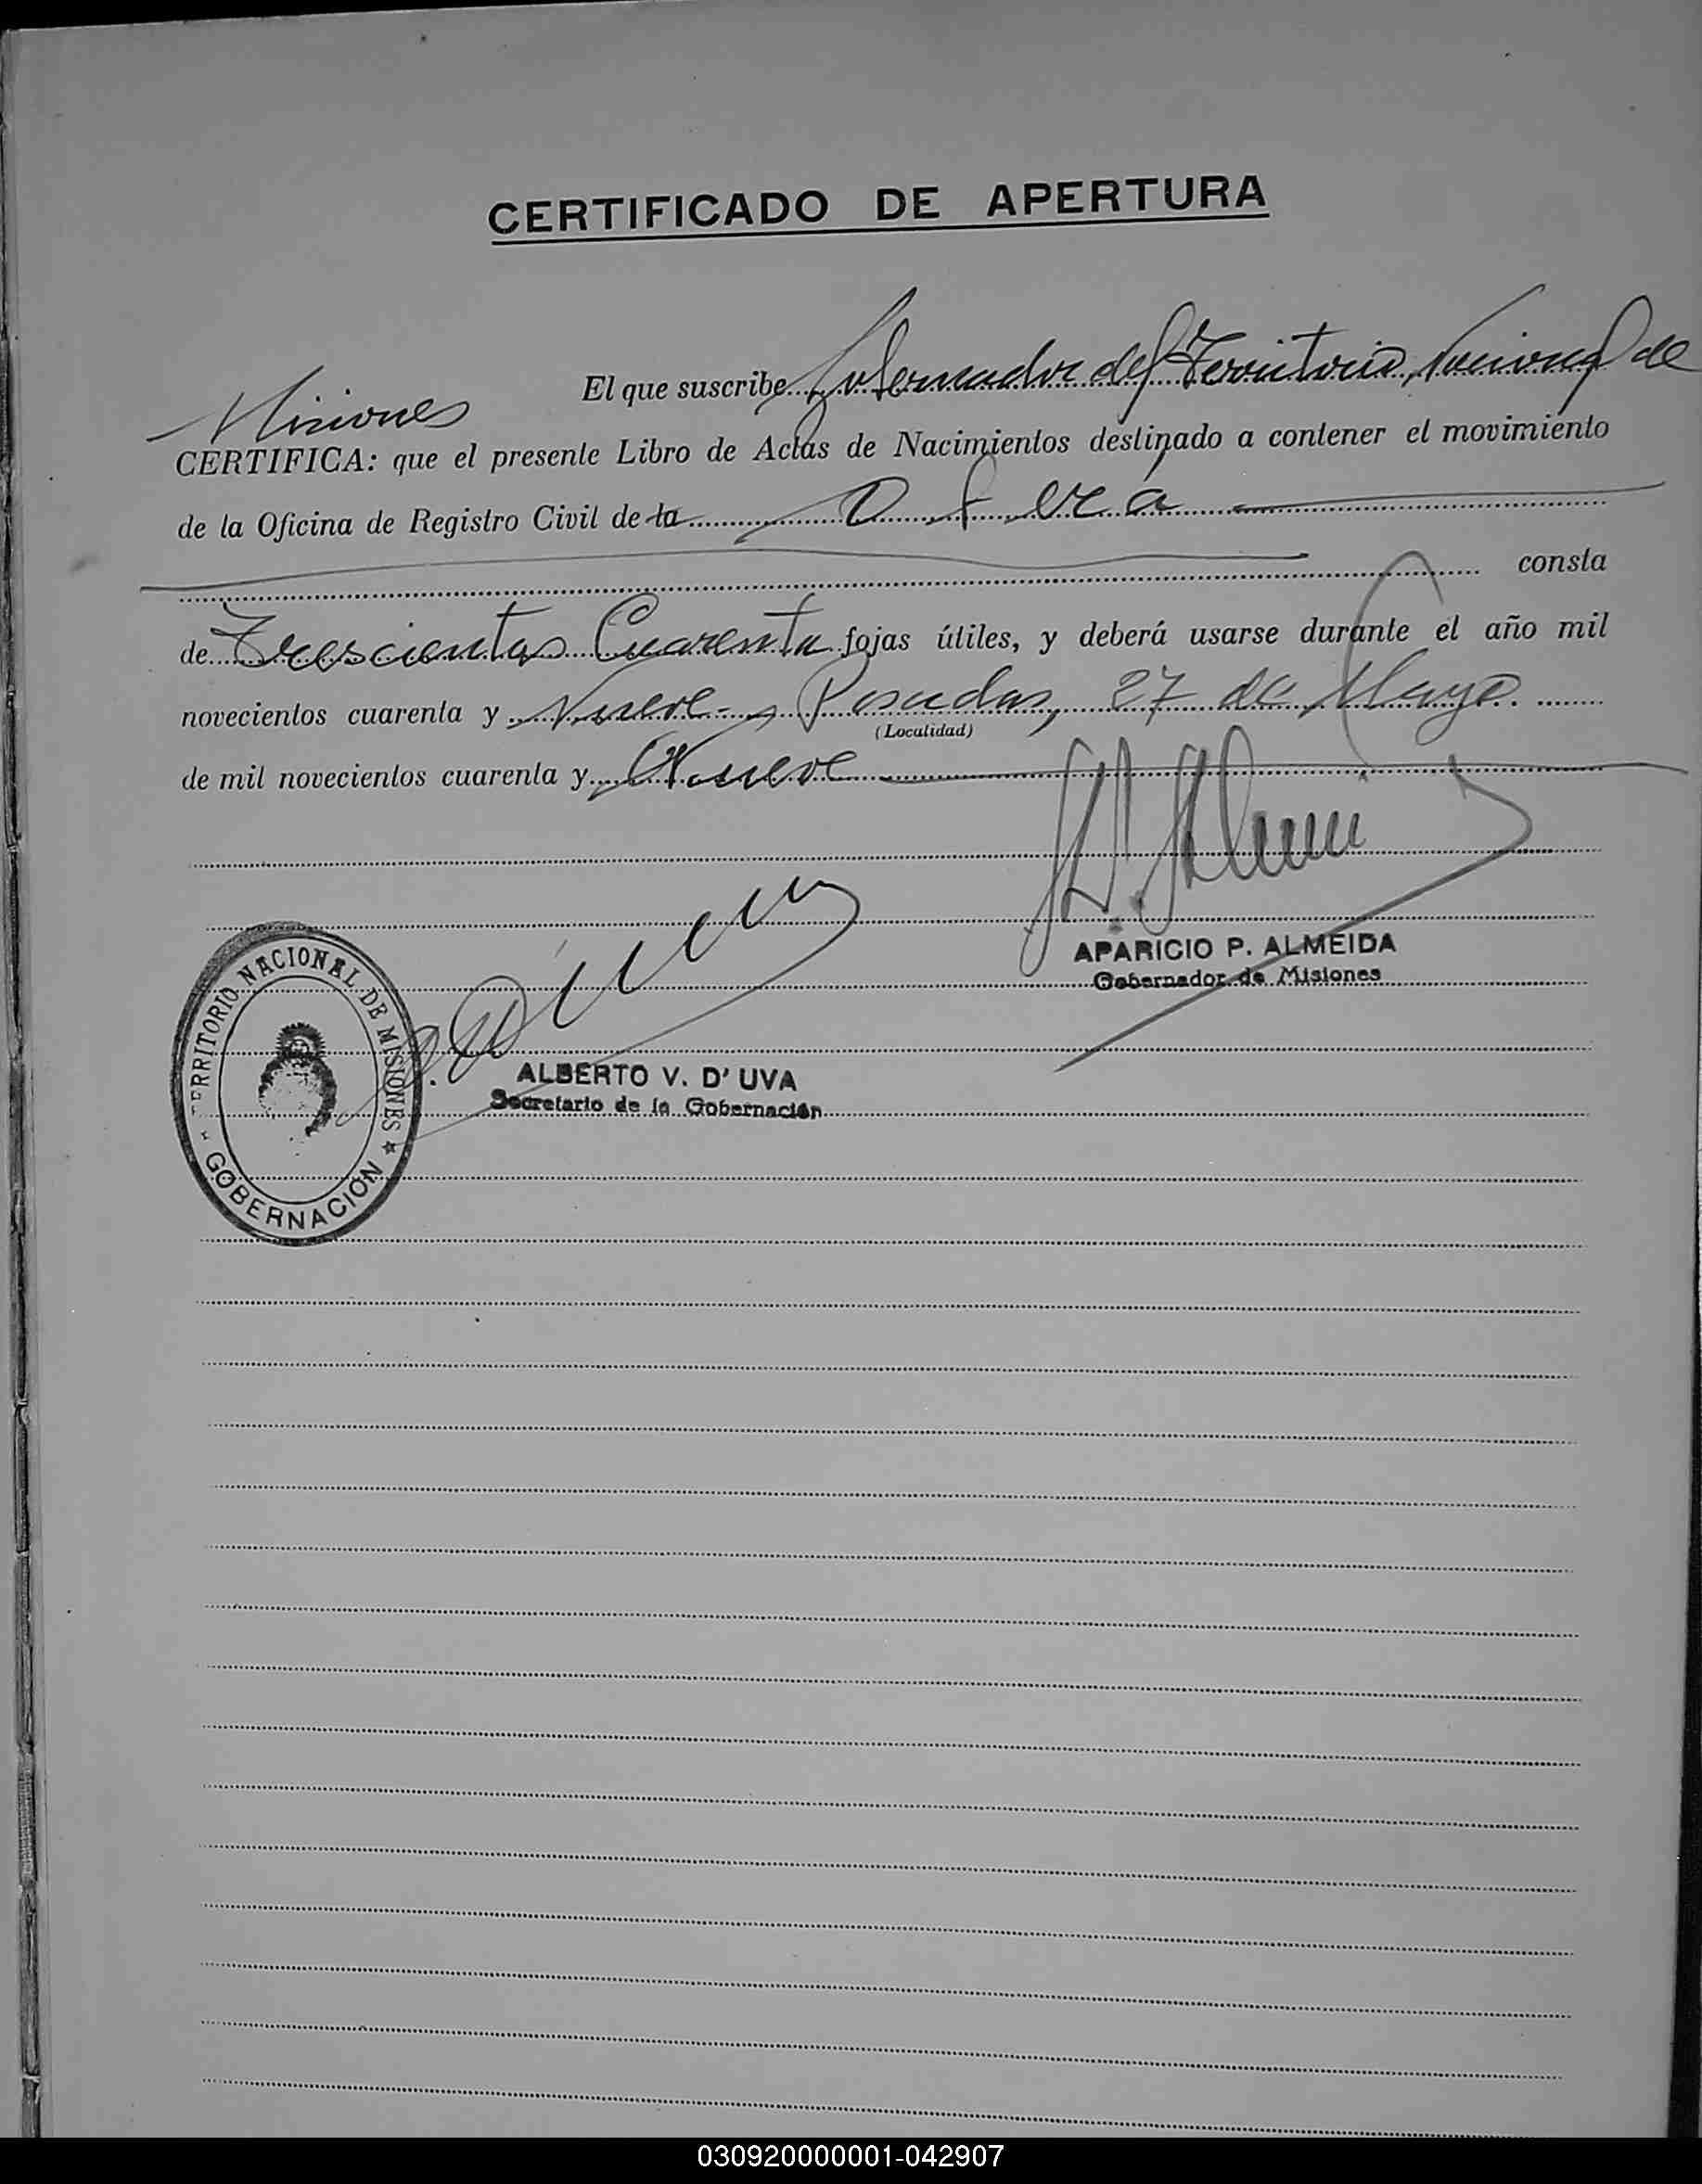 CERTIFICADO DE APERTURA
El que suscribe Gobernador del Territorio Nacional de
Misiones
CERTIFICA: que el presente Libro de Actas de Nacimientos destinado a contener el movimiento
de la Oficina de Registro Civil de la Oberá
consta
de Trescientas Cuarenta fojas útiles, y deberá usarse durante el año mil
novecientos cuarenta y Nueve - Posadas, 27 de Mayo.
(Localidad)
de mil novecientos cuarenta y Nueve
APARICIO P. ALMEIDA
Gobernador de Misiones
ALBERTO V. D' UVA
Secretario de la Gobernación
TERRITORIO NACIONAL DE MISIONES
GOBERNACIÓN
030920000001-042907